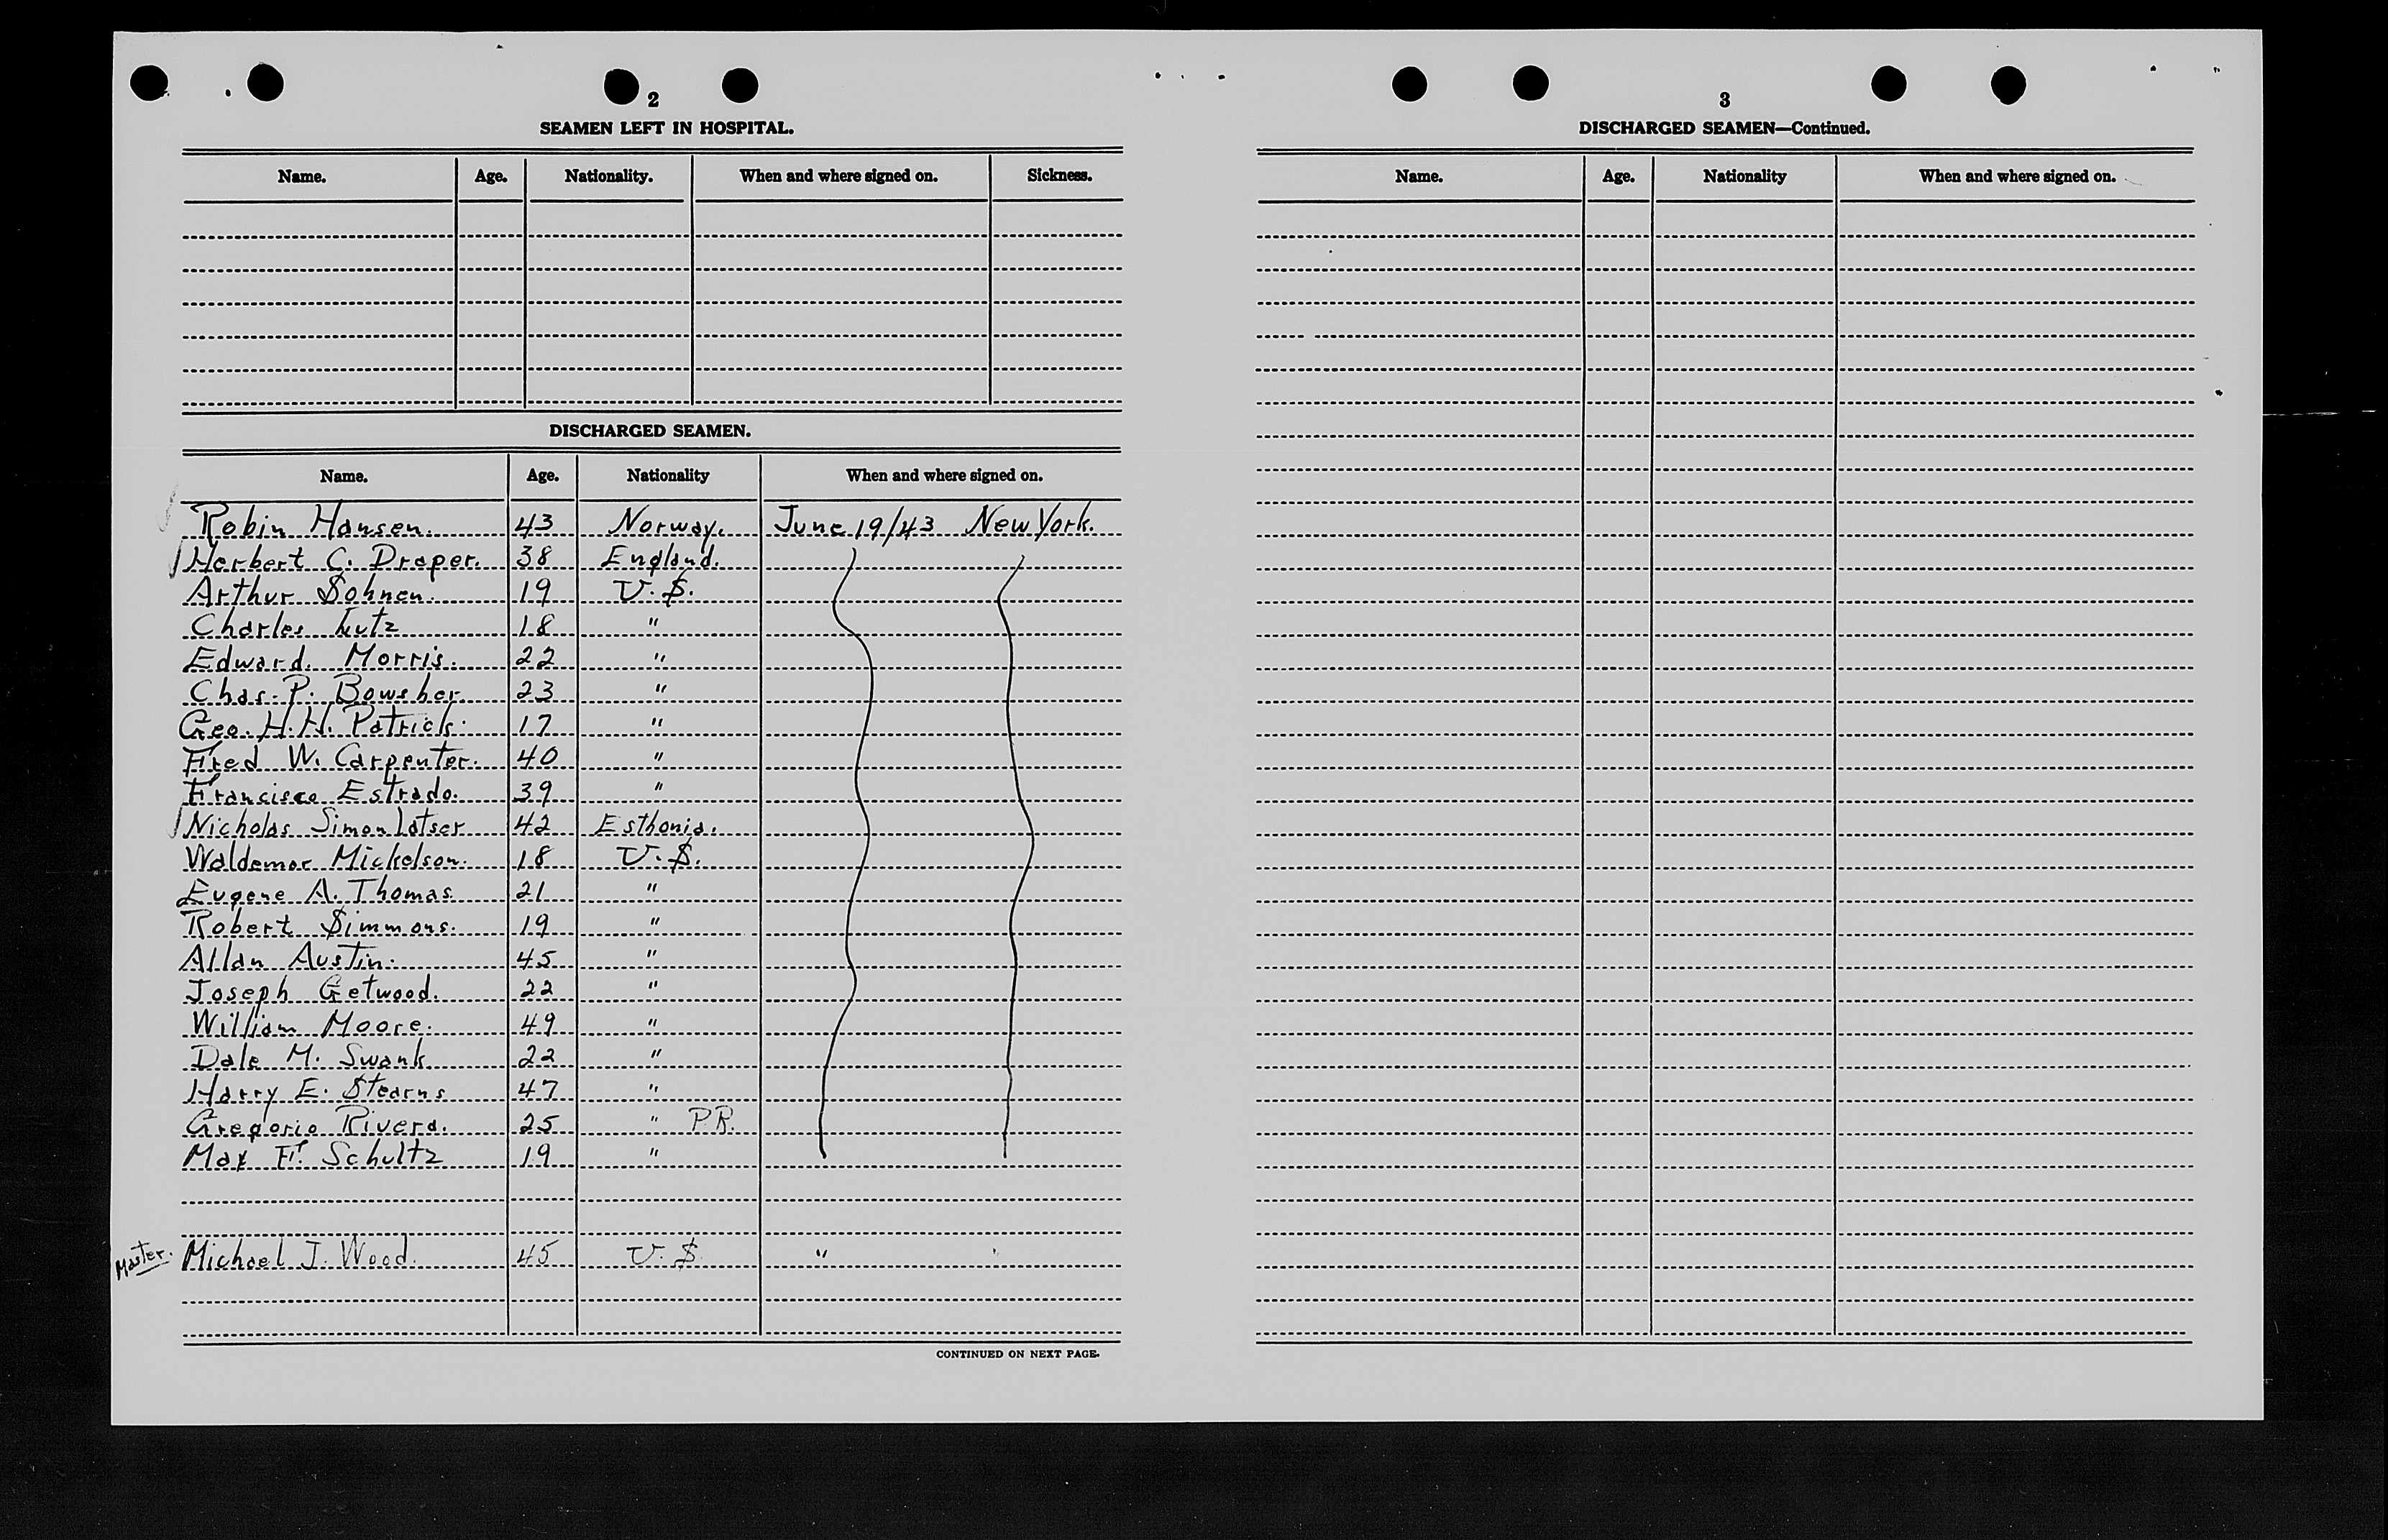 2
SEAMEN LEFT IN HOSPITAL.
Name. Age. Nationality. When and where signed on. Sickness.
DISCHARGED SEAMEN.
Name. Age. Nationality When and where signed on.
Robin Hansen. 43 Norway. June 19/43 New York.
Herbert C. Draper. 38 England.
Arthur Sohnen. 19 U.S.
Charles Lutz 18 "
Edward Morris. 22 "
Chas. P. Bowsher. 23 "
Geo. H.H. Patrick. 17 "
Fred W. Carpenter. 40 "
Francisco Estrado. 39 "
Nicholas Simon Latser 42 Esthonia.
Waldemar Mickelson. 18 U.S.
Eugene A. Thomas. 21 "
Robert Simmons. 19 "
Allan Austin. 45 "
Joseph Getwood. 22 "
William Moore. 49 "
Dale M. Swank 22 "
Harry E. Stearns 47 "
Gregorio Rivera. 25 " P.R.
Max F. Schultz 19 "
Master. Michael J. Wood. 45 U.S. "
CONTINUED ON NEXT PAGE.
3
DISCHARGED SEAMEN—Continued.
Name. Age. Nationality When and where signed on.